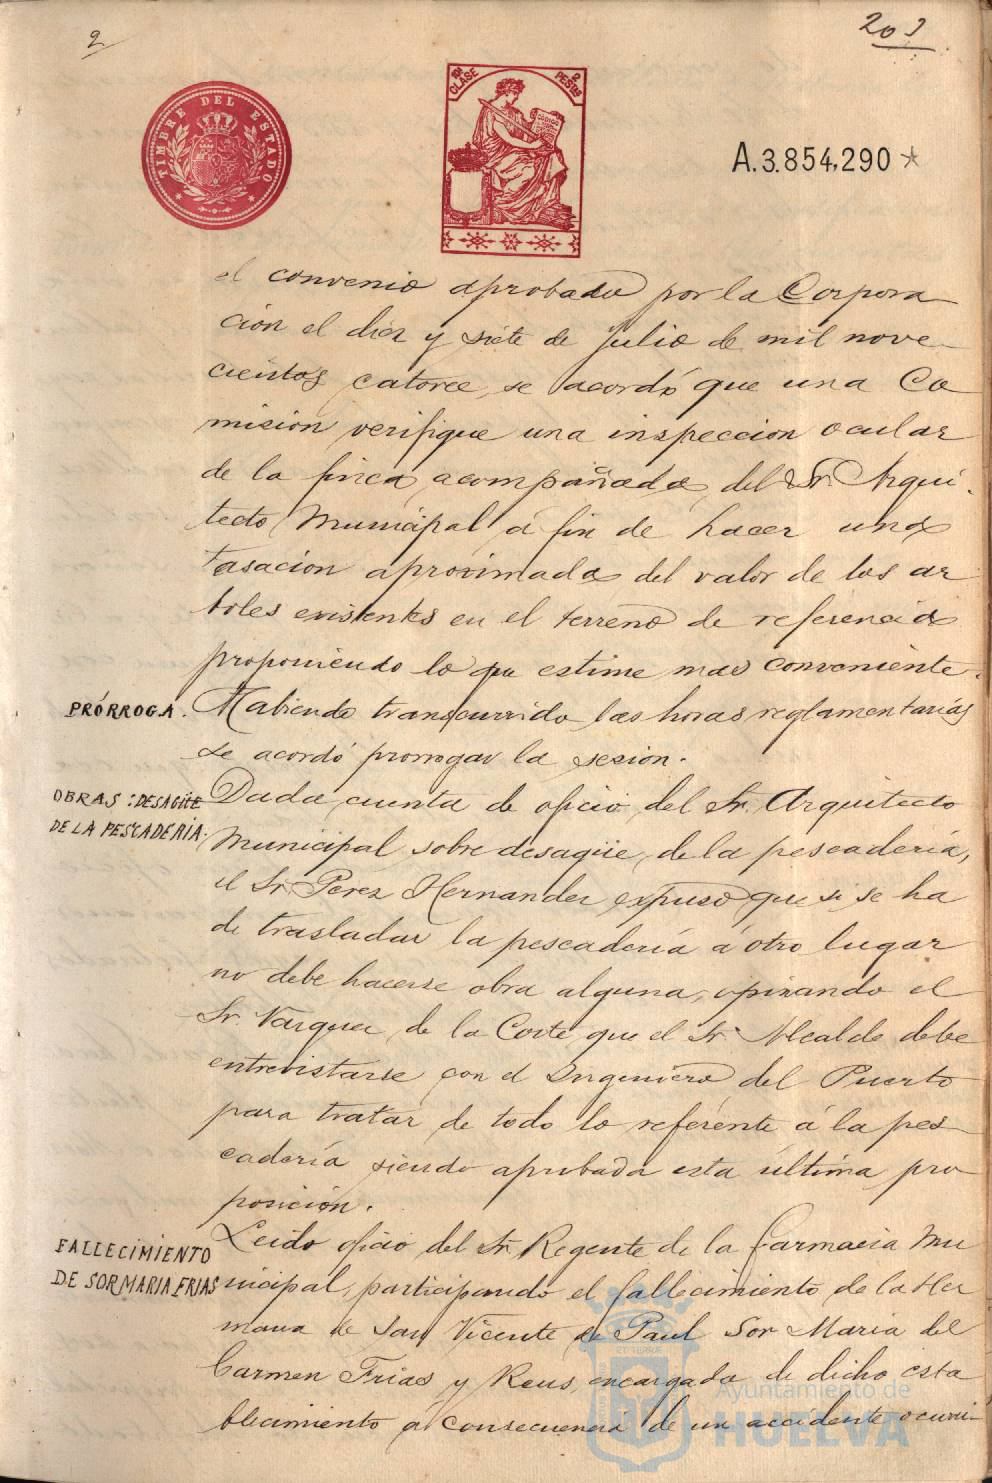 2
203
TIMBRE DEL ESTADO
CLASE
2 PESTAS
A.3.854,290 *
el convenio aprobado por la Corpora
ción el diez y siete de julio de mil nove-
cientos catorce, se acordó que una Co
misión verifique una inspeccion ocular
de la finca acompañada del Sr. Arqui-
tecto Municipal á fin de hacer una
tasacion aproximada del valor de los ar
boles existentes en el terreno de referencia
proponiendo lo que estime mas conveniente.
PRÓRROGA.
Habiendo transcurrido las horas reglamentarias
se acordó prorrogar la sesion.
OBRAS: DESAGÜE
DE LA PESCADERIA.
Dada cuenta de oficio del Sr. Arquitecto
Municipal sobre desagüe de la pescadería,
el Sr. Perez Hernandez expuso que si se ha
de trasladar la pescadería á otro lugar
no debe hacerse obra alguna, opinando el
Sr. Vazquez de la Corte que el Sr. Alcalde debe
entrevistarse con el Ingeniero del Puerto
para tratar de todo lo referente á la pes-
cadería siendo aprobada esta última pro
posición.
FALLECIMIENTO
DE SOR MARIA FRIAS
Leido oficio del Sr. Regente de la farmacia Mu
nicipal, participando el fallecimiento de la Her
mana de San Vicente de Paul Sor Maria del
Carmen Frias y Reus, encargada de dicho esta
blecimiento á consecuencia de un accidente ocurri-
Ayuntamiento de
HUELVA